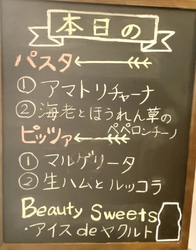 本日の
パスタ
① アマトリチャーナ
② 海老とほうれん草の
ペペロンチーノ
ピッツァ
① マルゲリータ
② 生ハムとルッコラ
Beauty Sweets
・アイス de ヤクルト